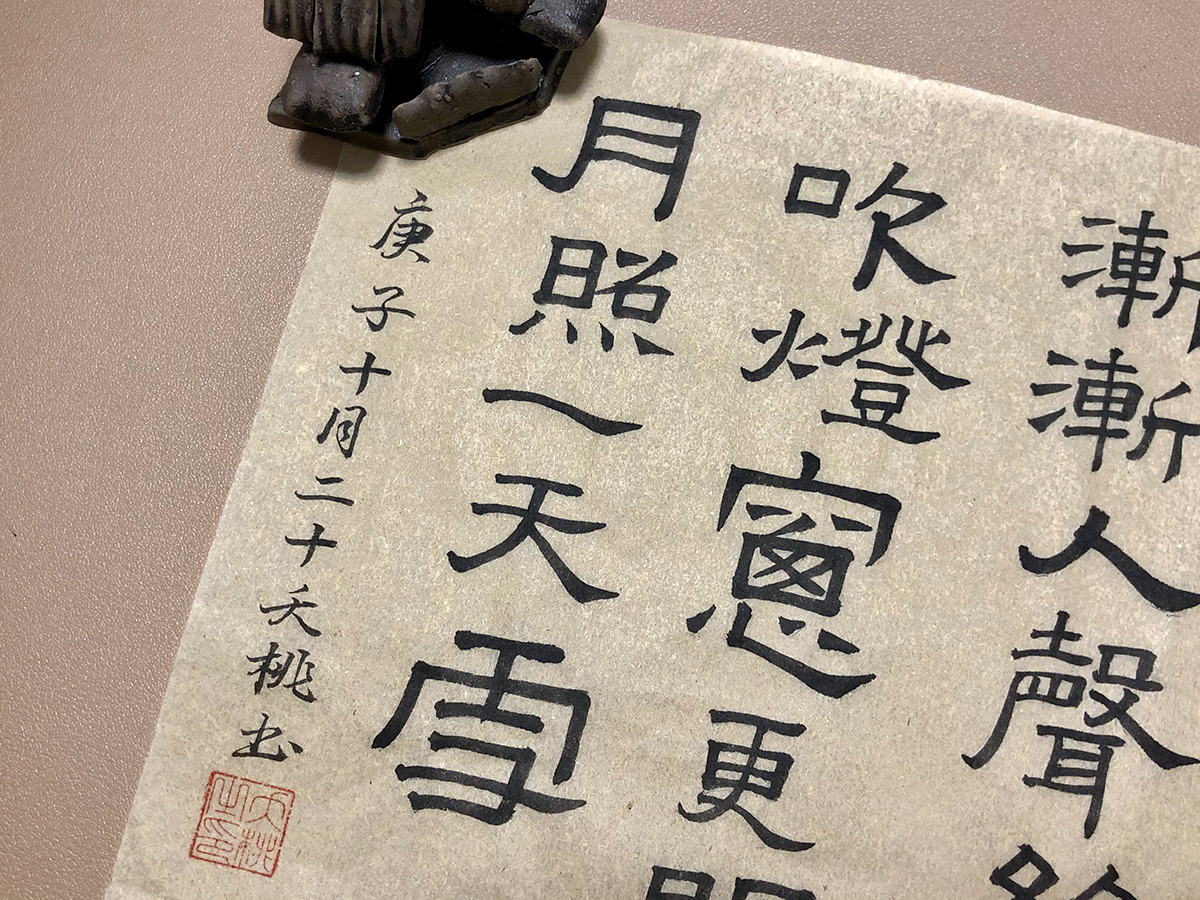 漸漸人聲
吹燈窻更
月照一天雪
庚子十月二十夭桃书
夭桃之印